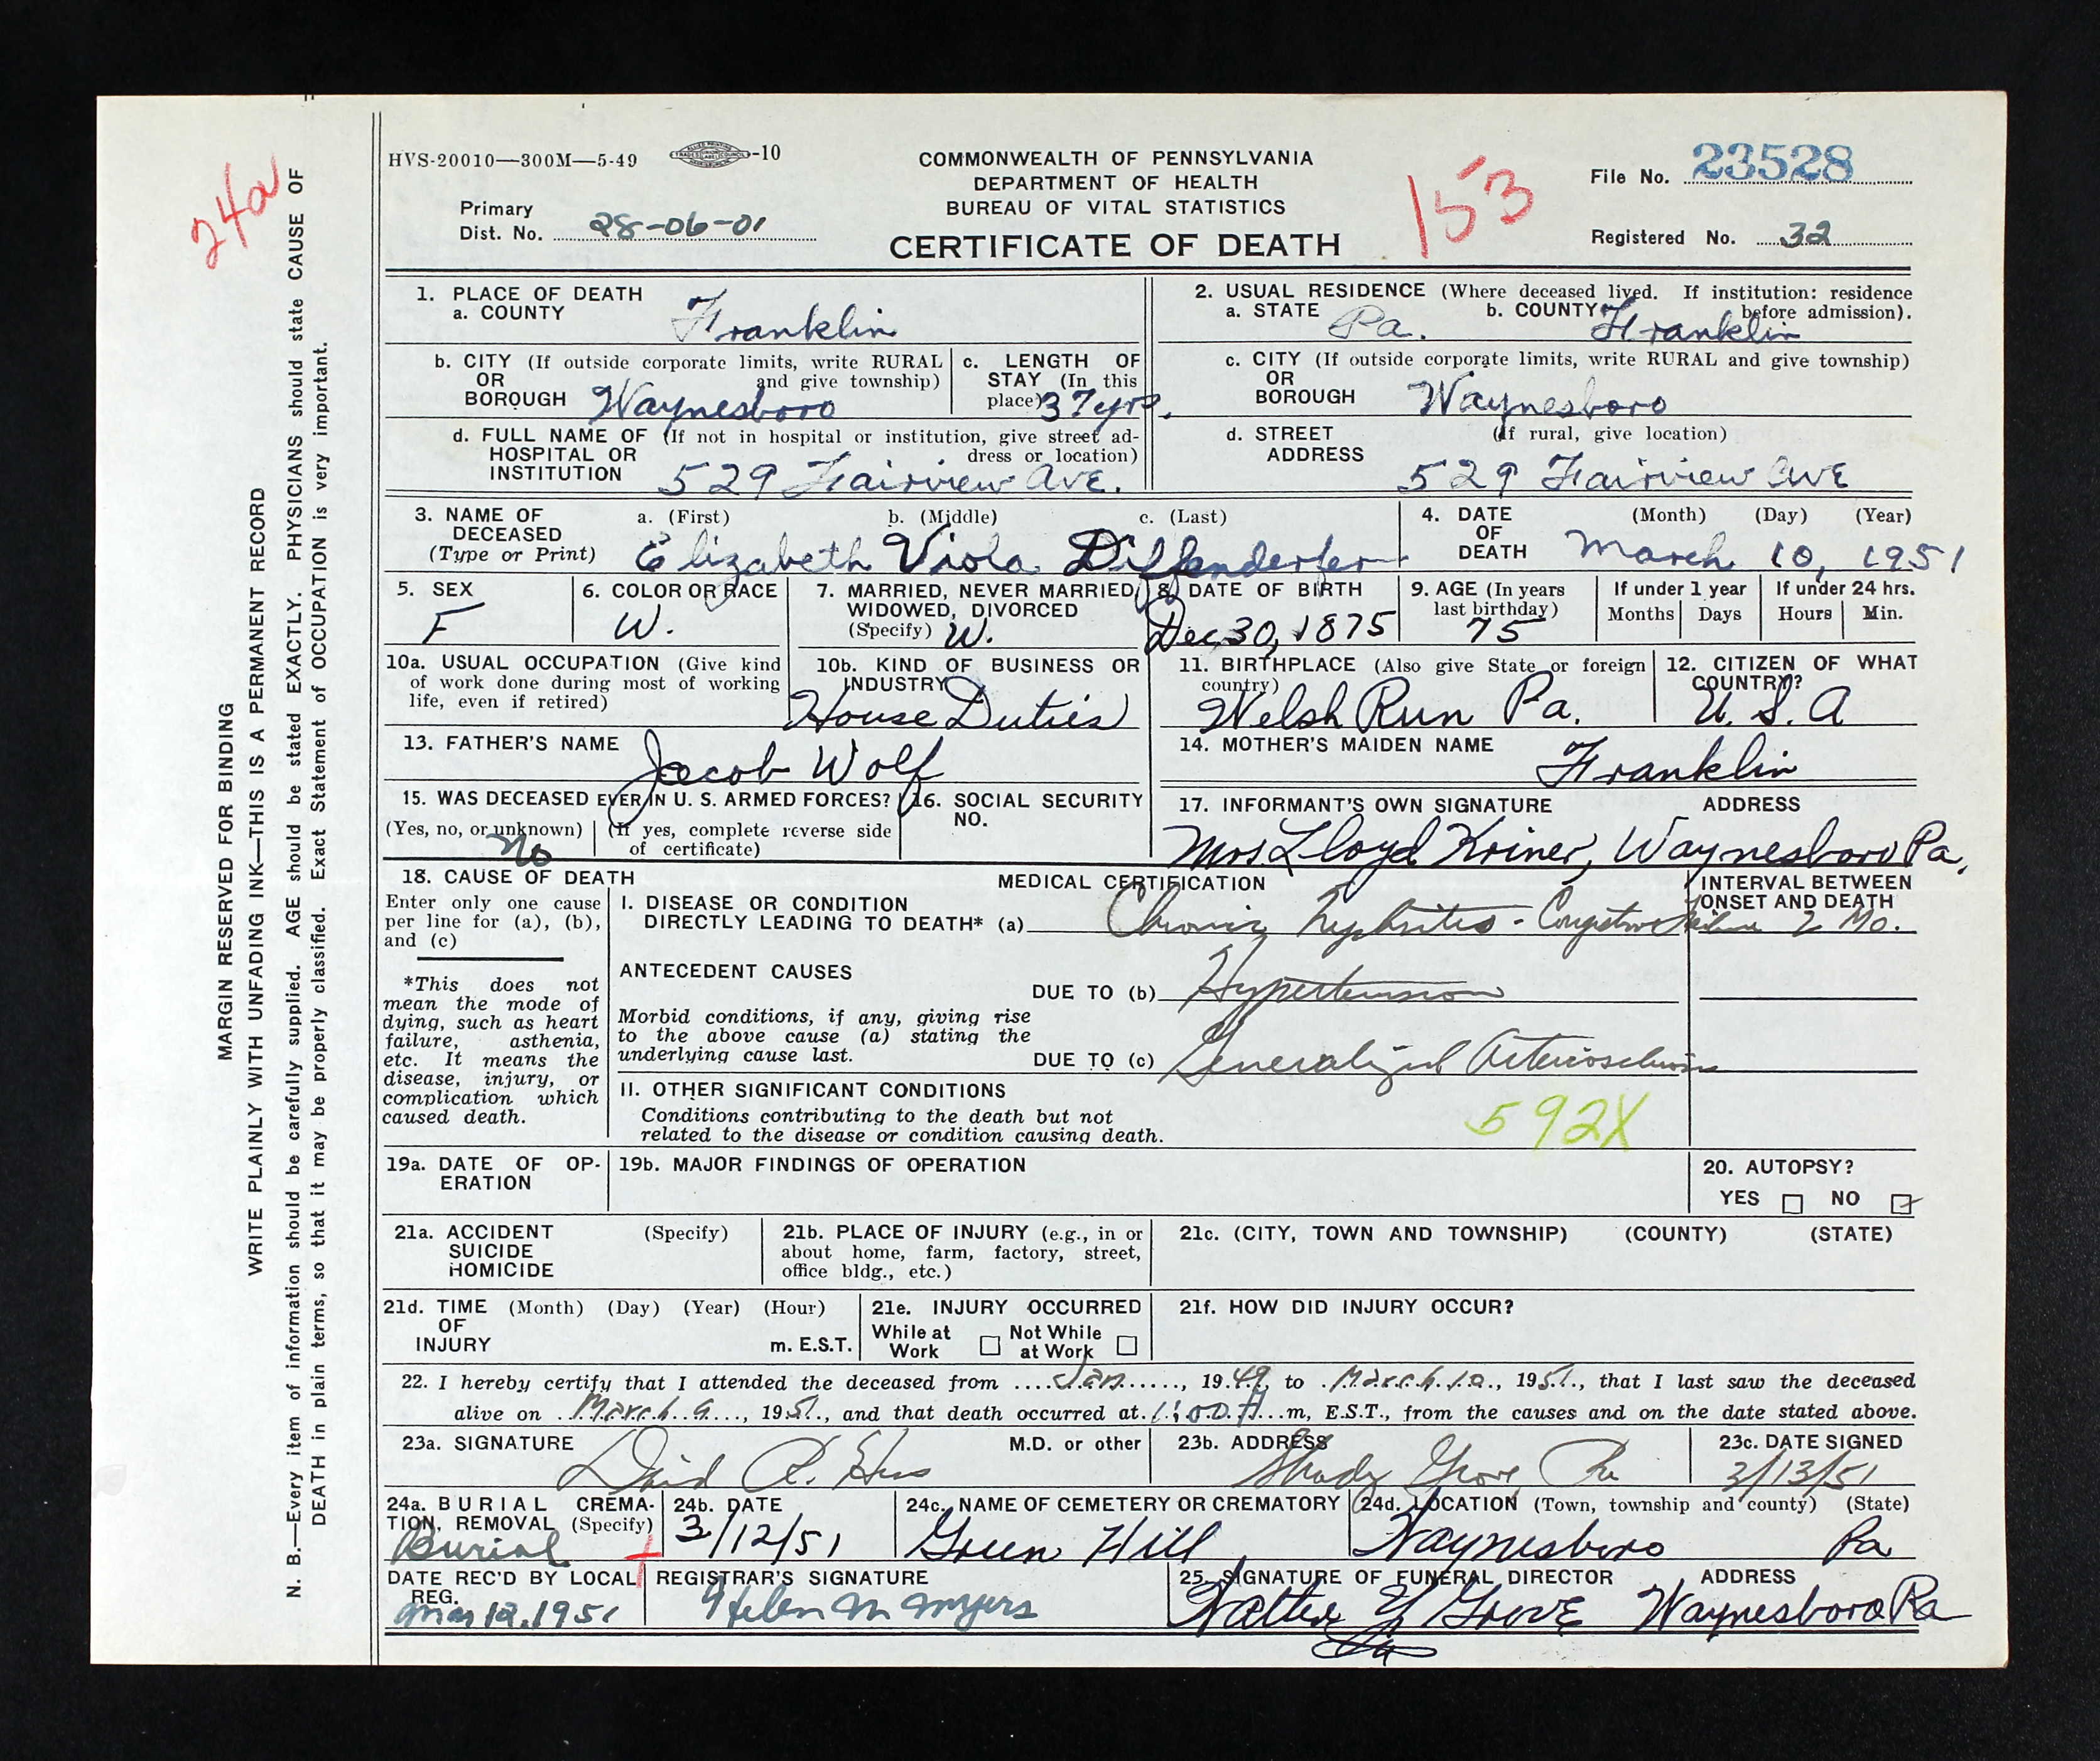 24a
MARGIN RESERVED FOR BINDING
WRITE PLAINLY WITH UNFADING INK—THIS IS A PERMANENT RECORD
N. B.—Every item of information should be carefully supplied. AGE should be stated EXACTLY. PHYSICIANS should state CAUSE OF
DEATH in plain terms, so that it may be properly classified. Exact Statement of OCCUPATION is very important.
HVS-20010—300M—5-49 -10
COMMONWEALTH OF PENNSYLVANIA
DEPARTMENT OF HEALTH
BUREAU OF VITAL STATISTICS
CERTIFICATE OF DEATH
153
File No. 23528
Primary
Dist. No. 28-06-01
Registered No. 32
1. PLACE OF DEATH
a. COUNTY Franklin
2. USUAL RESIDENCE (Where deceased lived. If institution: residence
before admission).
a. STATE Pa. b. COUNTY Franklin
b. CITY (If outside corporate limits, write RURAL
OR and give township)
BOROUGH Waynesboro
c. LENGTH OF
STAY (In this
place) 37 yrs.
c. CITY (If outside corporate limits, write RURAL and give township)
OR
BOROUGH Waynesboro
d. FULL NAME OF (If not in hospital or institution, give street ad-
HOSPITAL OR dress or location)
INSTITUTION 529 Fairview Ave.
d. STREET (If rural, give location)
ADDRESS 529 Fairview Ave
3. NAME OF a. (First) b. (Middle) c. (Last)
DECEASED
(Type or Print) Elizabeth Viola Diffenderfer
4. DATE (Month) (Day) (Year)
OF
DEATH March 10, 1951
5. SEX
F
6. COLOR OR RACE
W.
7. MARRIED, NEVER MARRIED,
WIDOWED, DIVORCED
(Specify) W.
8. DATE OF BIRTH
Dec, 30, 1875
9. AGE (In years
last birthday)
75
If under 1 year
Months Days
If under 24 hrs.
Hours Min.
10a. USUAL OCCUPATION (Give kind
of work done during most of working
life, even if retired)
10b. KIND OF BUSINESS OR
INDUSTRY
House Duties
11. BIRTHPLACE (Also give State or foreign
country)
Welsh Run Pa.
12. CITIZEN OF WHAT
COUNTRY?
U. S. A
13. FATHER'S NAME
Jacob Wolf
14. MOTHER'S MAIDEN NAME
Franklin
15. WAS DECEASED EVER IN U. S. ARMED FORCES?
(Yes, no, or unknown) (If yes, complete reverse side
of certificate)
No
16. SOCIAL SECURITY
NO.
17. INFORMANT'S OWN SIGNATURE ADDRESS
Mrs. Lloyd Kriner, Waynesboro Pa,
18. CAUSE OF DEATH
Enter only one cause
per line for (a), (b),
and (c)
*This does not
mean the mode of
dying, such as heart
failure, asthenia,
etc. It means the
disease, injury, or
complication which
caused death.
MEDICAL CERTIFICATION
INTERVAL BETWEEN
ONSET AND DEATH
I. DISEASE OR CONDITION
DIRECTLY LEADING TO DEATH* (a) Chronic Nephritis - Congestive Failure 2 Mo.
ANTECEDENT CAUSES
DUE TO (b) Hypertension
Morbid conditions, if any, giving rise
to the above cause (a) stating the
underlying cause last.
DUE TO (c) Generalized Arteriosclerosis
II. OTHER SIGNIFICANT CONDITIONS
Conditions contributing to the death but not
related to the disease or condition causing death.
592X
19a. DATE OF OP-
ERATION
19b. MAJOR FINDINGS OF OPERATION
20. AUTOPSY?
YES NO
21a. ACCIDENT (Specify)
SUICIDE
HOMICIDE
21b. PLACE OF INJURY (e.g., in or
about home, farm, factory, street,
office bldg., etc.)
21c. (CITY, TOWN AND TOWNSHIP) (COUNTY) (STATE)
21d. TIME (Month) (Day) (Year) (Hour)
OF
INJURY m. E.S.T.
21e. INJURY OCCURRED
While at Not While
Work at Work
21f. HOW DID INJURY OCCUR?
22. I hereby certify that I attended the deceased from Jan, 1949, to March 10, 1951, that I last saw the deceased
alive on March 9, 1951, and that death occurred at 1:00 A m, E.S.T., from the causes and on the date stated above.
23a. SIGNATURE M.D. or other
David R. Hess
23b. ADDRESS
Shady Grove Pa
23c. DATE SIGNED
3/13/51
24a. BURIAL CREMA-
TION, REMOVAL (Specify)
Burial
24b. DATE
3/12/51
24c. NAME OF CEMETERY OR CREMATORY
Green Hill
24d. LOCATION (Town, township and county) (State)
Waynesboro Pa
DATE REC'D BY LOCAL
REG.
Mar 12, 1951
REGISTRAR'S SIGNATURE
Helen M Myers
25. SIGNATURE OF FUNERAL DIRECTOR ADDRESS
Walter Y Grove Waynesboro Pa